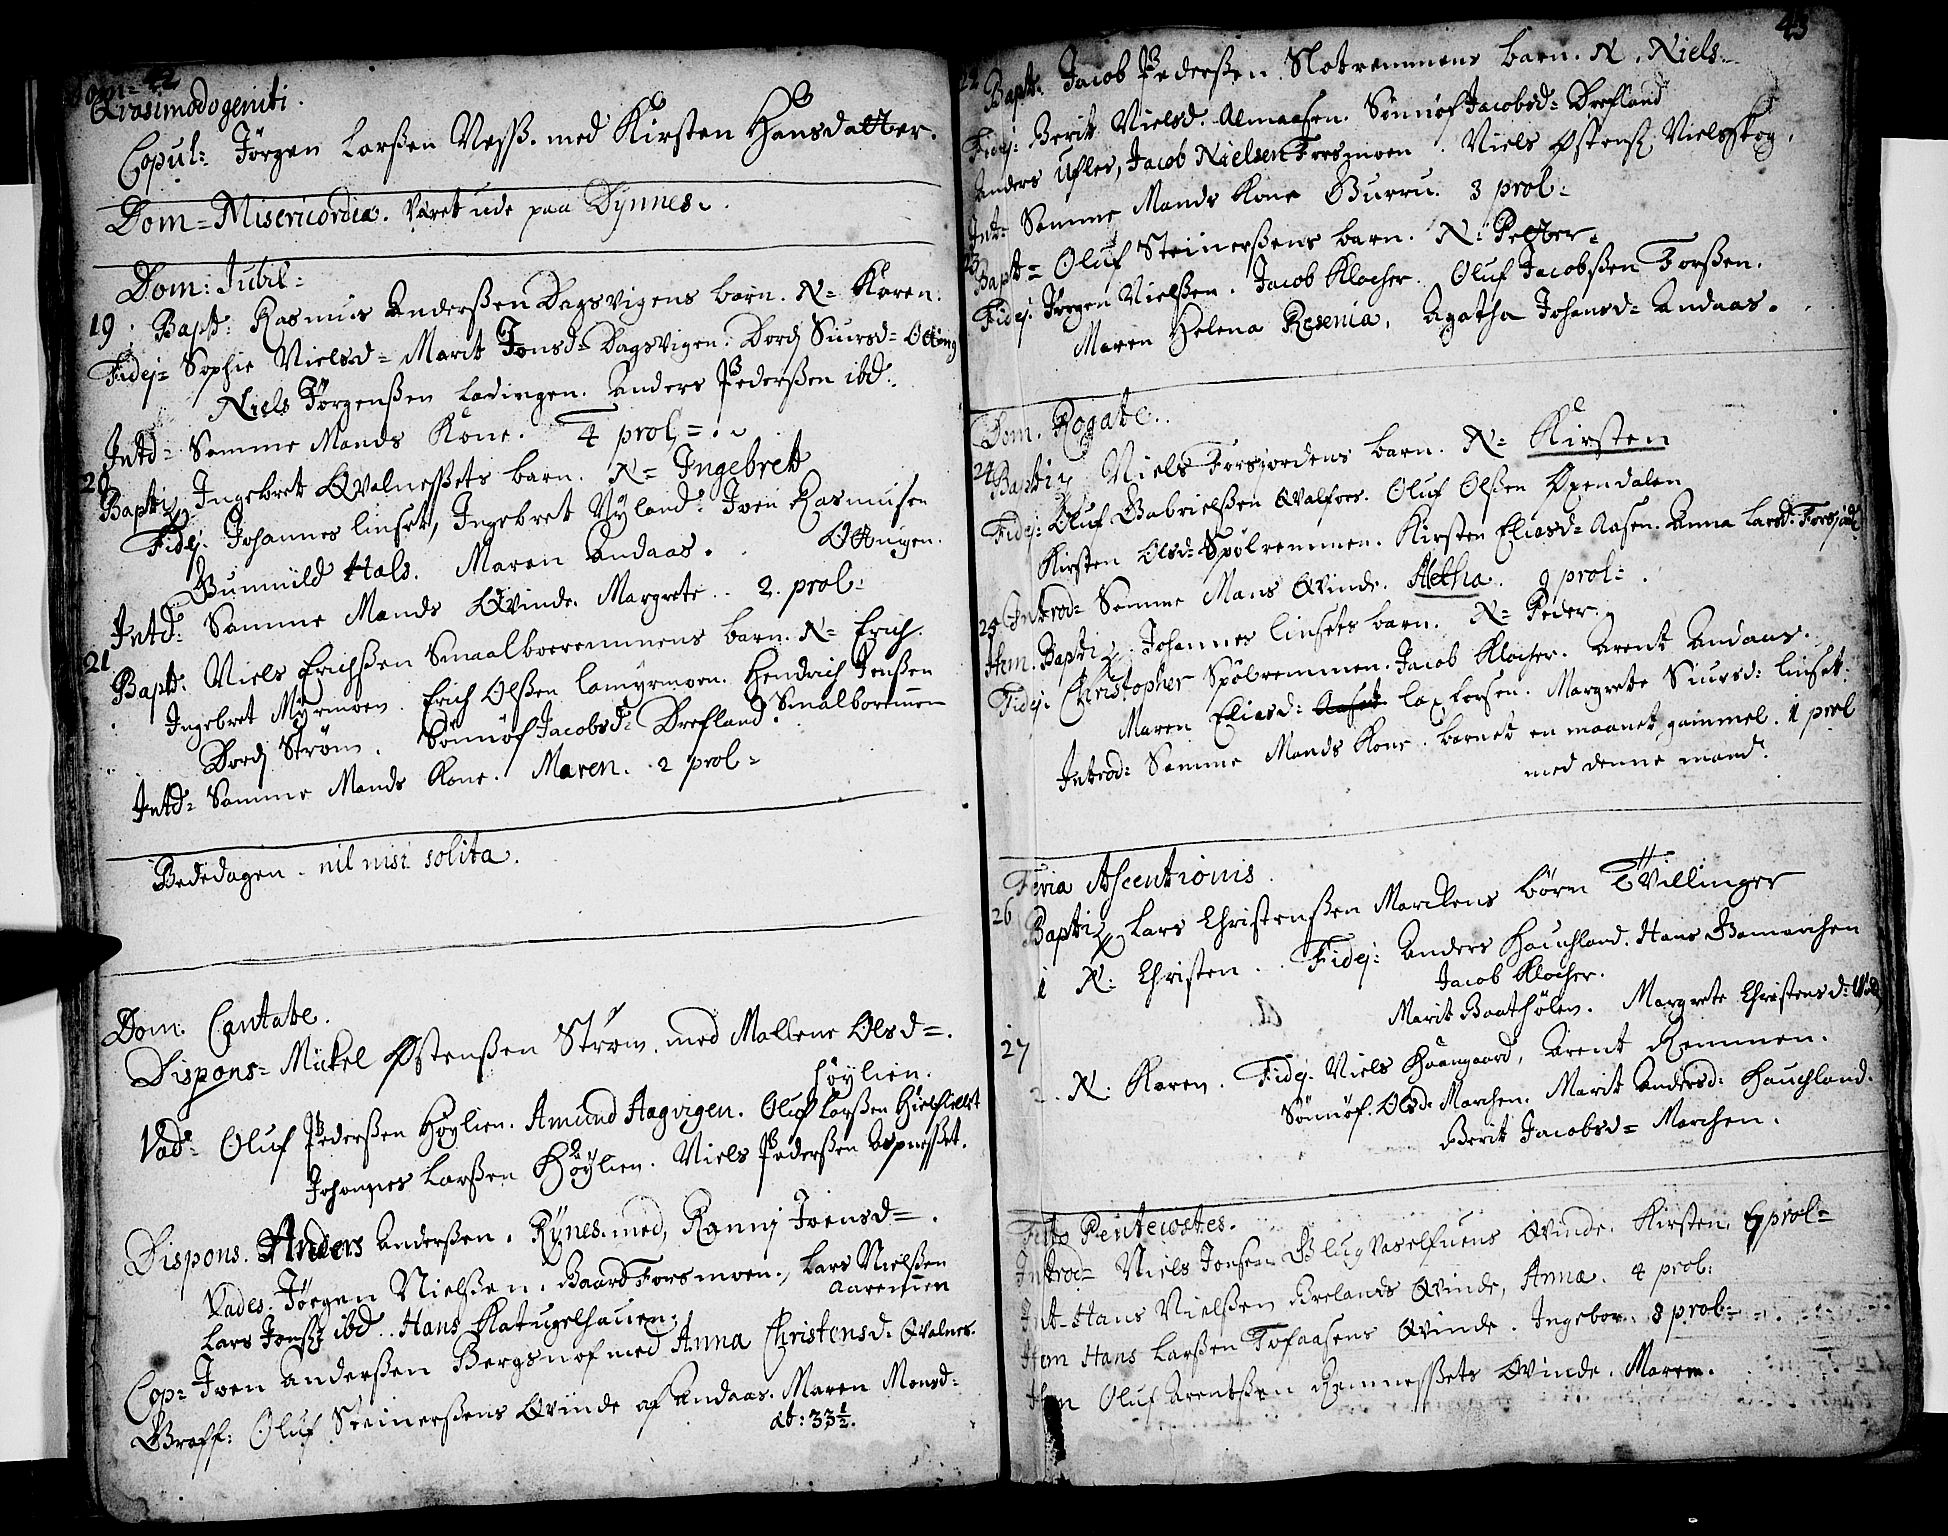 42
Dom=
Qvasimodogeniti.
Copul: Jörgen Larßen Næss. med Kirsten Hansdatter.
Dom=Misericordia. Varet ude paa Dynnes.
Dom: Jubil=
19. Bapt: Rasmus Anderßen Dagsvigens barn. N= Karen.
Fidej= Sophie Nielsd= Marit Jonsd= Dagsvigen. Dordj Siursd=
Niels Jörgenßen Ladingen. Anders Pederßen ibd.
Intd= Samme Mands Kone. 4 prol=
20
Baptiz. Ingebret Qvalnessets barn. N= Ingebrett
Fidej. Johannes Linset, Ingebret Nyland. Iven Rasmusen
Gunnild Hals. Maren Andaas. Ottingen.
Intd: Samme Mands Qvinde. Margrete. 2. prol=
21
Bapt: Niels Erichßen Smaalboremmens barn. N= Erich.
Ingebret Myrmoen. Erich Olßen Lamyrmoen. Hendrich Jenßen
Dordj Ström. Sönnöf Jacobsd: Drefland. Smalboremmen
Intd= Samme Mands Kone. Maren. 2 prol=
Bededagen. nil nisi solita.
Dom: Cantate.
Dispons= Mickel Østenßen Ström. med Mallene Olsd=.
Höylien.
Vad= Oluf Pederßen Höylien. Amund Aagvigen. Oluf Larßen
Johannes Larßen Höylien. Niels Pederßen Aspnesset.
Dispons. Anders Anderßen. Rynes. med, Rannj Ivensd=.
Vades. Jörgen Nielßen. Baard Forsmoen., Lars Nielßen
Aaremmen
Lars Jonss ibd. Hans Katugelhauen.
Cop= Iven Anderßen Bergsnof med Anna Christensd: Qvalnes.
Graff: Oluf Steinerßens Qvinde af Andaas. Maren Monsd=
æt: 33½.
43
22 Bapt: Jacob Pederßen Slotremmens barn. N. Niels.
Fidej: Berit Nielsd. Almaasen. Sönnöf Jacobsd= Drefland
Anders Ufler, Jacob Nielsen Forsmoen. Niels Østens Nielsskog.
Int= Samme Mands Kone Gurru. 3 prol=
23
Bapt= Oluf Steinerßens barn. N: Petter=
Fidej: Jörgen Nielßen. Jacob Klocker. Oluf Jacobßen Forßen.
Maren Helena Resenia, Agatha Johansd= Andaas.
Dom. Rogate.
24
Baptiz Niels Forsjordens barn. N= Kirsten
Fidej= Oluf Gabrielßen Qvalfors. Oluf Olßen Øxendalen
Kirsten Olsd= Spölremmen. Kirsten Eliasd= Aasen. Anna Larsd:
Introd= Samme Mans Qvinde. Aletha. 9 prol=.
25
Item. Baptiz. Johannes Linsets barn. N= Peder.
Fidej: Christopher Spölremmen. Jacob Klocker. Arent Andaas.
Maren Eliasd: Laxforsen. Margrete Siursd: Linset.
Introd= Samme Mands Kone. barnet en maanet gammel. 1 prol
med denne mand.
Feria Ascentionis.
26
Baptiz Lars Christenßen Marckens börn Tvillinger
1 N: Christen. Fidej: Anders Hauchland. Hans Remarchen
Jacob Klocker.
Marit Baathölen. Margrete Christensd:
27
2. N. Karen. Fidej. Niels Haangaard, Arent Remmen.
Sönnöf. Olsd: Marchen. Marit Andersd: Hauchland.
Berit Jacobsd= Marchen.
Festo Pentecostes.
Introd= Niels Jonsen Qvinde. Kirsten. 7 prol=
Int= Hans Nielßen Brelands Qvinde, Anna. 4 prol:
Item Hans Larßen Tofaasens Qvinde. Ingebor. 8 prol=
Item Oluf Arentßen Remnessets Qvinde. Maren.